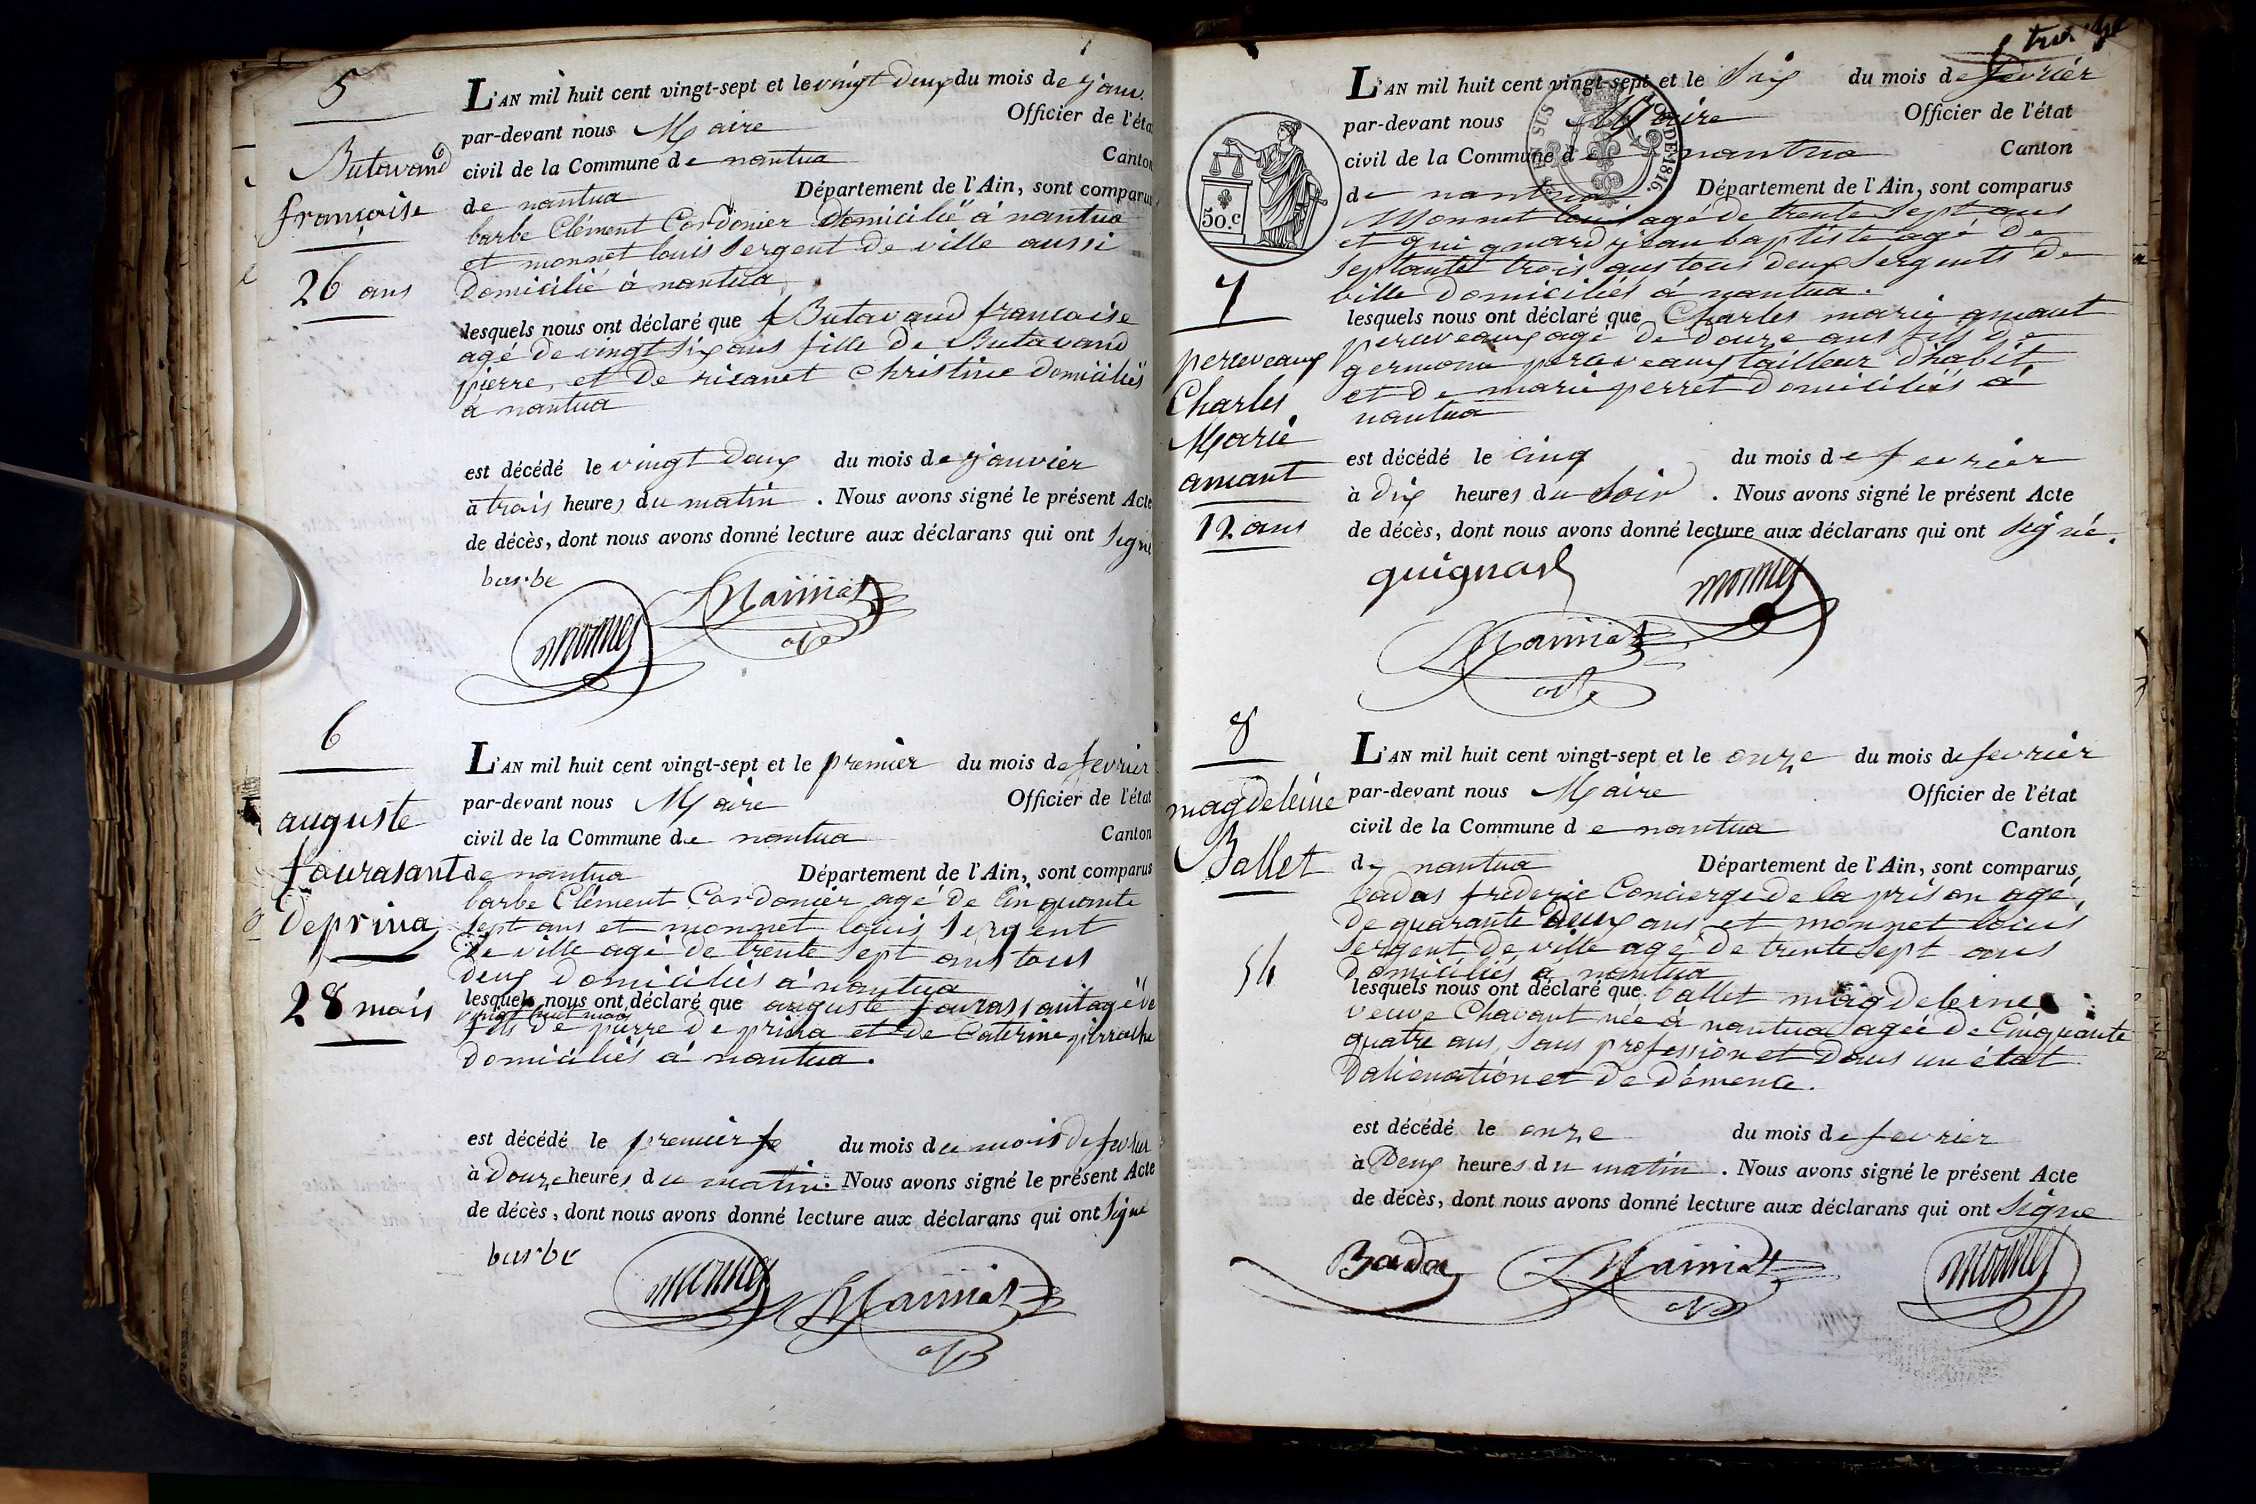 5
Butavand
françoise
26 ans
L'AN mil huit cent vingt-sept et le vingt deux du mois de janv.
par-devant nous Maire Officier de l'éta
civil de la Commune de nantua Canton
de nantua Département de l'Ain, sont comparus
barbe Clément Cordonier Domicilié à nantua
et monnet louis sergent de ville aussi
Domicilié à nantua
lesquels nous ont déclaré que Butavand francoise
agé de vingt six ans fille de Butavand
pierre, et de Christine Domiciliés
à nantua
est décédé le vingt Deux du mois de janvier
à trois heures du matin. Nous avons signé le présent Acte
de décès, dont nous avons donné lecture aux déclarans qui ont signé
barbe
monnet
6
auguste
fourasant
deprina
28 mois
L'AN mil huit cent vingt-sept et le premier du mois de fevrier
par-devant nous Maire Officier de l'état
civil de la Commune de nantua Canton
de nantua Département de l'Ain, sont comparus
barbe Clément Cordonier agé de Cinquante
sept ans et monnet louis sergent
de ville agé de trente sept ans tous
deux Domiciliés à nantua
lesquels nous ont déclaré que auguste fourassant agé de
vingt huit mois
fils de pierre de prina et de Caterine
domiciliés à nantua.
est décédé le premier du mois du mois de fevrier
à Douze heures du matin. Nous avons signé le présent Acte
de décès, dont nous avons donné lecture aux déclarans qui ont Signé
barbe
monnet
50.c
LOI DE 1816.
7
perceveaux
Charles
Marie
amant
12 ans
L'AN mil huit cent vingt-sept et le Six du mois de fevrier
par-devant nous Maire Officier de l'état
civil de la Commune de nantua Canton
de nantua Département de l'Ain, sont comparus
Monnet louis agé de trente sept ans
et guignard jean baptiste agé de
septante trois ans tous deux sergents de
ville Domiciliés à nantua.
lesquels nous ont déclaré que Charles marie amant
perceveaux agé de Douze ans fils de
germain perceveaux tailleur d'habit
et de marie perret domiciliés à
nantua
est décédé le cinq du mois de fevrier
à dix heures du Soir. Nous avons signé le présent Acte
de décès, dont nous avons donné lecture aux déclarans qui ont signé.
guignard
monnet
8
magdeleine
Ballet
54
L'AN mil huit cent vingt-sept et le onze du mois de fevrier
par-devant nous Maire Officier de l'état
civil de la Commune de nantua Canton
de nantua Département de l'Ain, sont comparus
badas frederic Concierge de la prison agé,
de quarante deux ans et monnet louis
sergent de ville agé de trente sept ans
Domiciliés à nantua
lesquels nous ont déclaré que ballet magdeleine
veuve Chavant née à nantua agée de Cinquante
quatre ans, sans profession et Dans un état
Dalienation et de démence.
est décédé le onze du mois de fevrier
à Deux heures du matin. Nous avons signé le présent Acte
de décès, dont nous avons donné lecture aux déclarans qui ont Signé
Bada
monnet